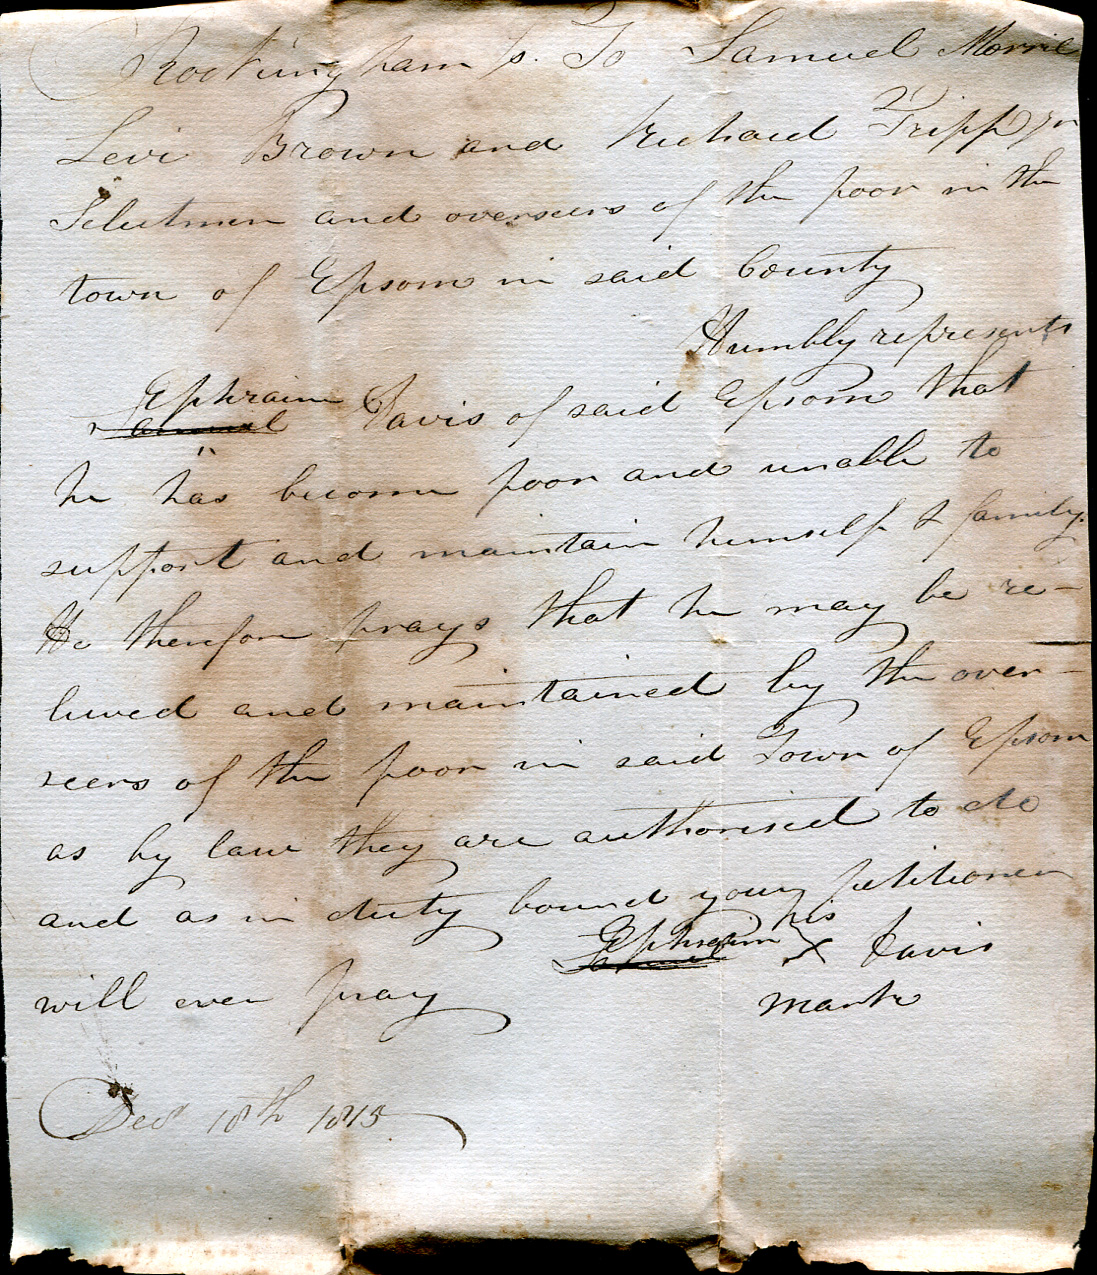 Rockingham ss. To Samuel Morril
Levi Brown and Richard Tripp Jn
Selectmen and overseers of the poor in the
town of Epsom in said County
Humbly represents
Ephraim
Samuel Davis of said Epsom that
he has become poor and unable to
support and maintain himself & family.
He therefore prays that he may be re-
lieved and maintained by the over-
seers of the poor in said Town of Epsom
as by law they are authorised to do
and as in duty bound your petitioner
will ever pray
Ephraim his
Samuel X Davis
mark
Decr 18th 1815